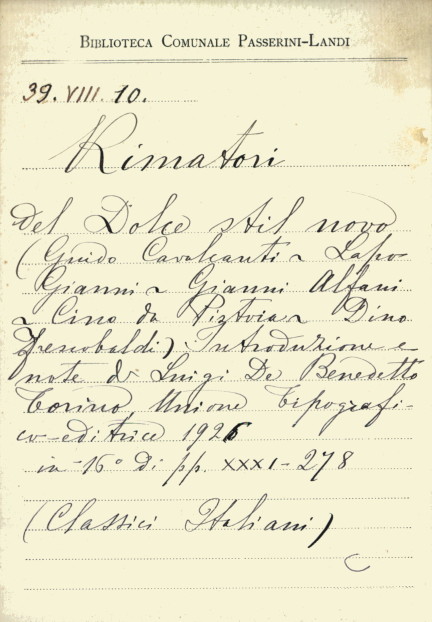 BIBLIOTECA COMUNALE PASSERINI-LANDI
39. VIII. 10.
Rimatori
del Dolce stil novo
(Guido Cavalcanti ~ Lapo
Gianni ~ Gianni Alfani
~ Cino da Pistoia ~ Dino
Frescobaldi) Introduzione e
note di Luigi De Benedetto
Torino, Unione Tipografi-
co-editrice 1926
in-16° di pp. XXXI-278
(Classici Italiani)